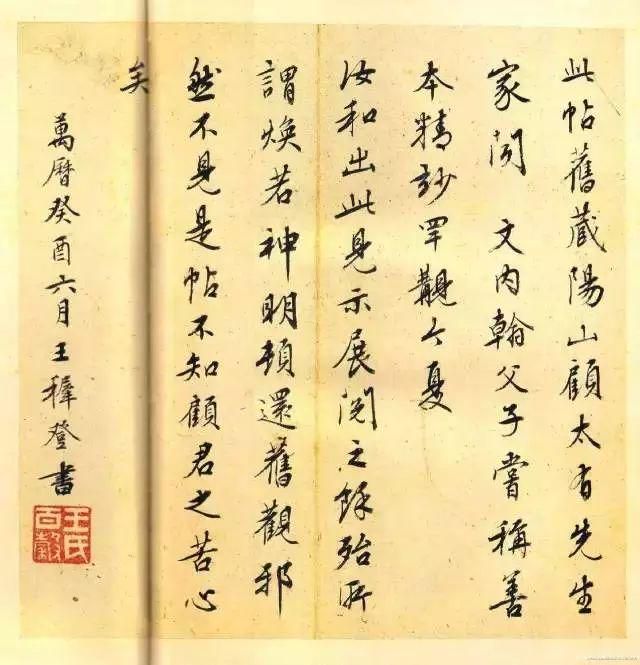 此帖舊藏陽山顧太有先生
家聞 文內翰父子嘗稱善
本精玅罕覯今夏
汝和出此見示展閱之餘殆所
謂煥若神明頓還舊觀邪
然不見是帖不知顧君之苦心
矣
萬曆癸酉六月王穉登書
王氏百穀